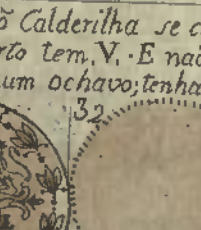 õ Calderilha se c
rto tem. V. E naõ
um ochavo; tenha
32